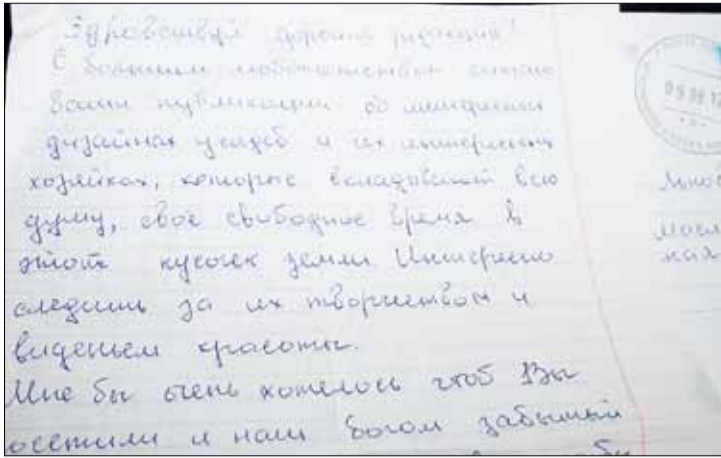 Здравствуй дорогая редакция!
С большим любопытством читаю
ваши публикации об интересных
дизайнах усадеб и их интересных
хозяйках, которые вкладывают всю
душу, своё свободное время в
этот кусочек земли. Интересно
следить за их творчеством и
виденьем красоты.
Мне бы очень хотелось чтоб Вы
посетили и наш Богом забытый